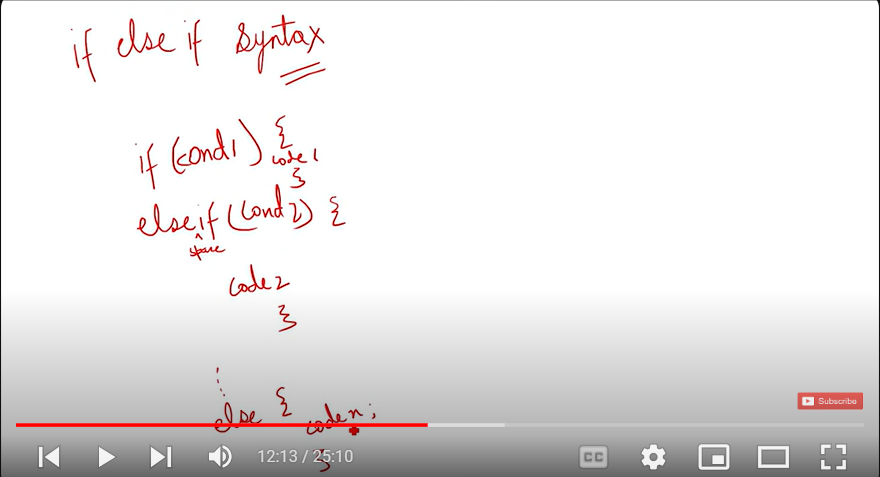 if else if syntax
if (cond1) {
code 1
}
else if (cond 2) {
^
space
code 2
}
else {
code n;
}
Subscribe
12:13 / 25:10
CC